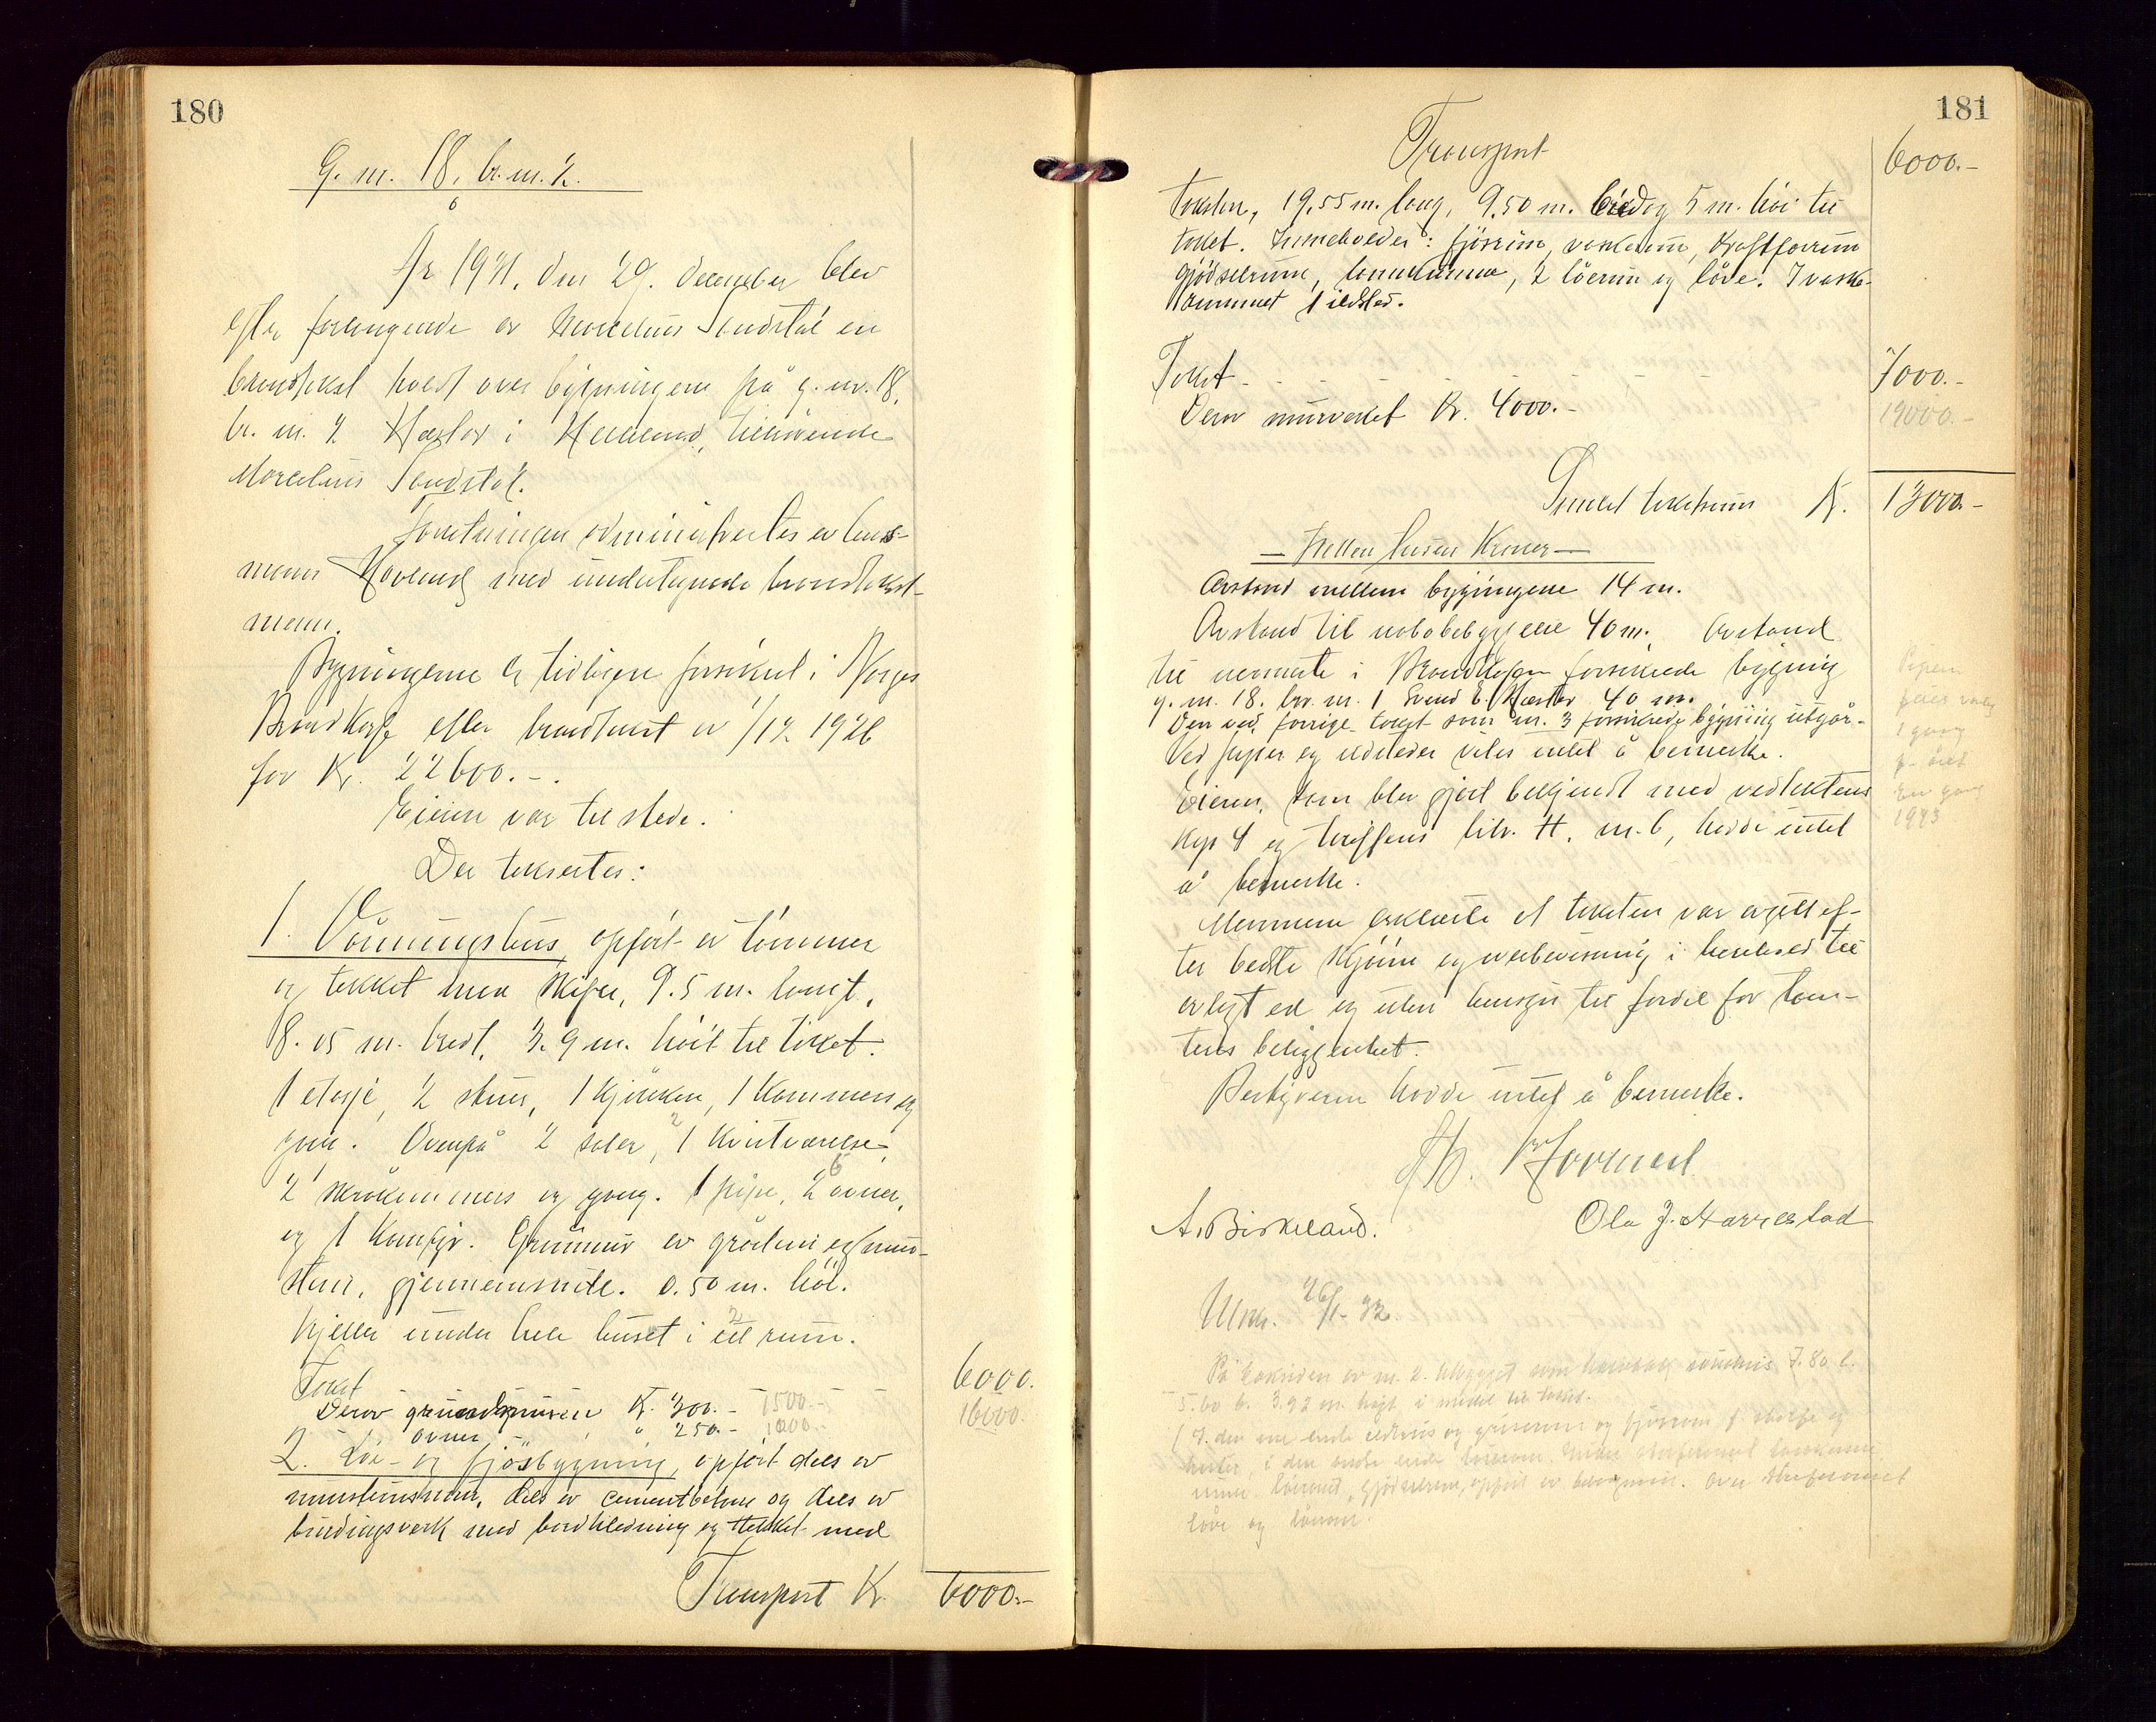 180
G. nr. 18, br. nr. 2.
År 1931, den 29. december blev
efter forlangende av Marcelius Sandstøl en
brandtakst holdt over bygningene på g. nr. 18,
br. nr. 2 Hæstad i Helleland, tilhørende
Marcelius Sandstøl.
Forretningen administrertes av lens-
mann Hovland med undertegnede brandtakst-
menn.
Bygningerne er tidligere forsikret i Norges
Brandkasse efter brandtakst av 1/12 1926
for Kr. 22600.-.
Eieren var til stede.
Der taksertes:
1. Våningshus, opført av tømmer
og tekket med skifer, 9.5 m. langt,
8.05 m. bredt, 3.9 m. høit til taket.
1 etasje, 2 stuer, 1 kjøkken, 1 kammers og
gang. Ovenpå 2 saler, 1 kvistværelse,
2 skråkammers og gang. 1 pipe, 2 ovner,
og 1 komfyr. Grunnmur av gråsten og mur-
sten, gjennemsnitl. 0.50 m. høi.
Kjeller under hele huset i ett rum.
Takst 6000.
Derav grunnmuren Kr. 300.- 1500.- 16000.
ovner " 250.- 1000.-
2. Løe- og fjøsbygning, opført dels av
murstensmur, dels av cementbetong og dels av
bindingsverk med bordkledning og tekket med
Transport Kr. 6000.-
181
Transport 6000.-
taksten, 19,55 m. lang, 9,50 m. bred og 5 m. høi til
taket. Inneholder: fjøsrum, vaskerum, kraftforrum
gjødselrum, landkumme, 2 løerum og låve. I vaske-
rummet 1 ildsted.
Takst - 7000.-
Derav murverket Kr. 4000.- 19000.-
Samlet takstsum Kr. 13000.-
- Tretten tusen Kroner -
Avstand mellem bygningene 14 m.
Avstand til nabobebyggelse 40 m. Avstand
til nærmeste i Brandkassen forsikrede bygning
g. nr. 18. br. nr. 1 Svend E. Hæstad 40 m.
Den ved forrige takst som nr. 3 forsikrede bygning utgår.
Ved piper og ildsteder vites intet å bemerke.
Eieren, som blev gjort bekjendt med vedtektens
kap 4 og tariffens litr. H. nr. 6, hadde intet
å bemerke.
Pipen
feies
1 gang
p. året
En gang
1943
Mennene erklærte at taksten var avgitt ef-
ter beste skjønn og overbevisning i henhold til
avlagt ed og uten hensyn til fordel for tom-
tens beliggenhet.
Bestyreren hadde intet å bemerke.
Hovland
A. Birkeland. Ola J. Harrestad
Utskr. 26/1-32.
På baksiden av nr. 2. tilbygget 7.80 l.
5.60 b. 3.92 m. høgt i middel til taket.
I den ene ende eldhus og griserum og fjøsrum
i den andre ende
gjødselrum, opført av
løve og løerum.